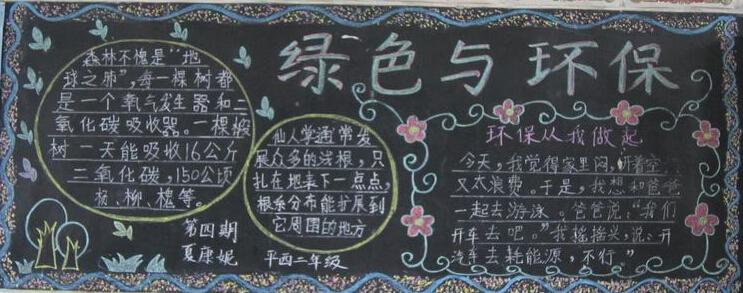 绿色与环保
森林不愧是“地
球之肺”,每一棵树都
是一个氧气发生器和二
氧化碳吸收器。一棵椴
树一天能吸收16公斤
二氧化碳,150公顷
杨、柳、槐等。
仙人掌通常发
展众多的浅根,只
扎在地表下一点点,
根系分布能扩展到
它周围的地方
第四期
夏康妮
平西二年级
环保从我做起
今天,我觉得家里闷,开着空
又太浪费。于是,我想和爸爸
一起去游泳。爸爸说:“我们
开车去吧。”我摇摇头,说:开
汽车去耗能源,不行”